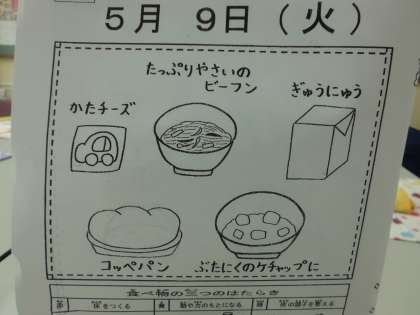 5月 9日 (火)
たっぷりやさいの
ビーフン
ぎゅうにゅう
かたチーズ
コッペパン
ぶたにくのケチャップに
食べ物の三つのはたらき
をつくる
になる
の調子を整える